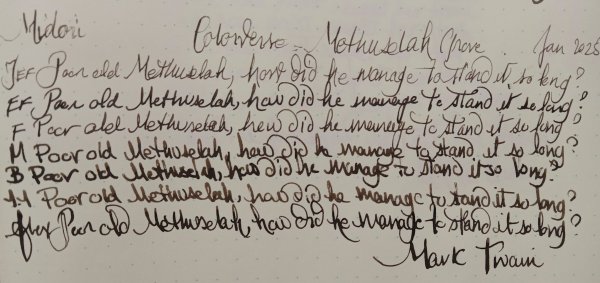 Midori Colorverse - Methuselah Grove . Jan 2025
JEF Poor old Methuselah, how did he manage to stand it so long?
EF Poor old Methuselah, how did he manage to stand it so long?
F Poor old Methuselah, how did he manage to stand it so long?
M Poor old Methuselah, how did he manage to stand it so long?
B Poor old Methuselah, how did he manage to stand it so long?
1.1 Poor old Methuselah, how did he manage to stand it so long?
Poor old Methuselah, how did he manage to stand it so long?
Mark Twain